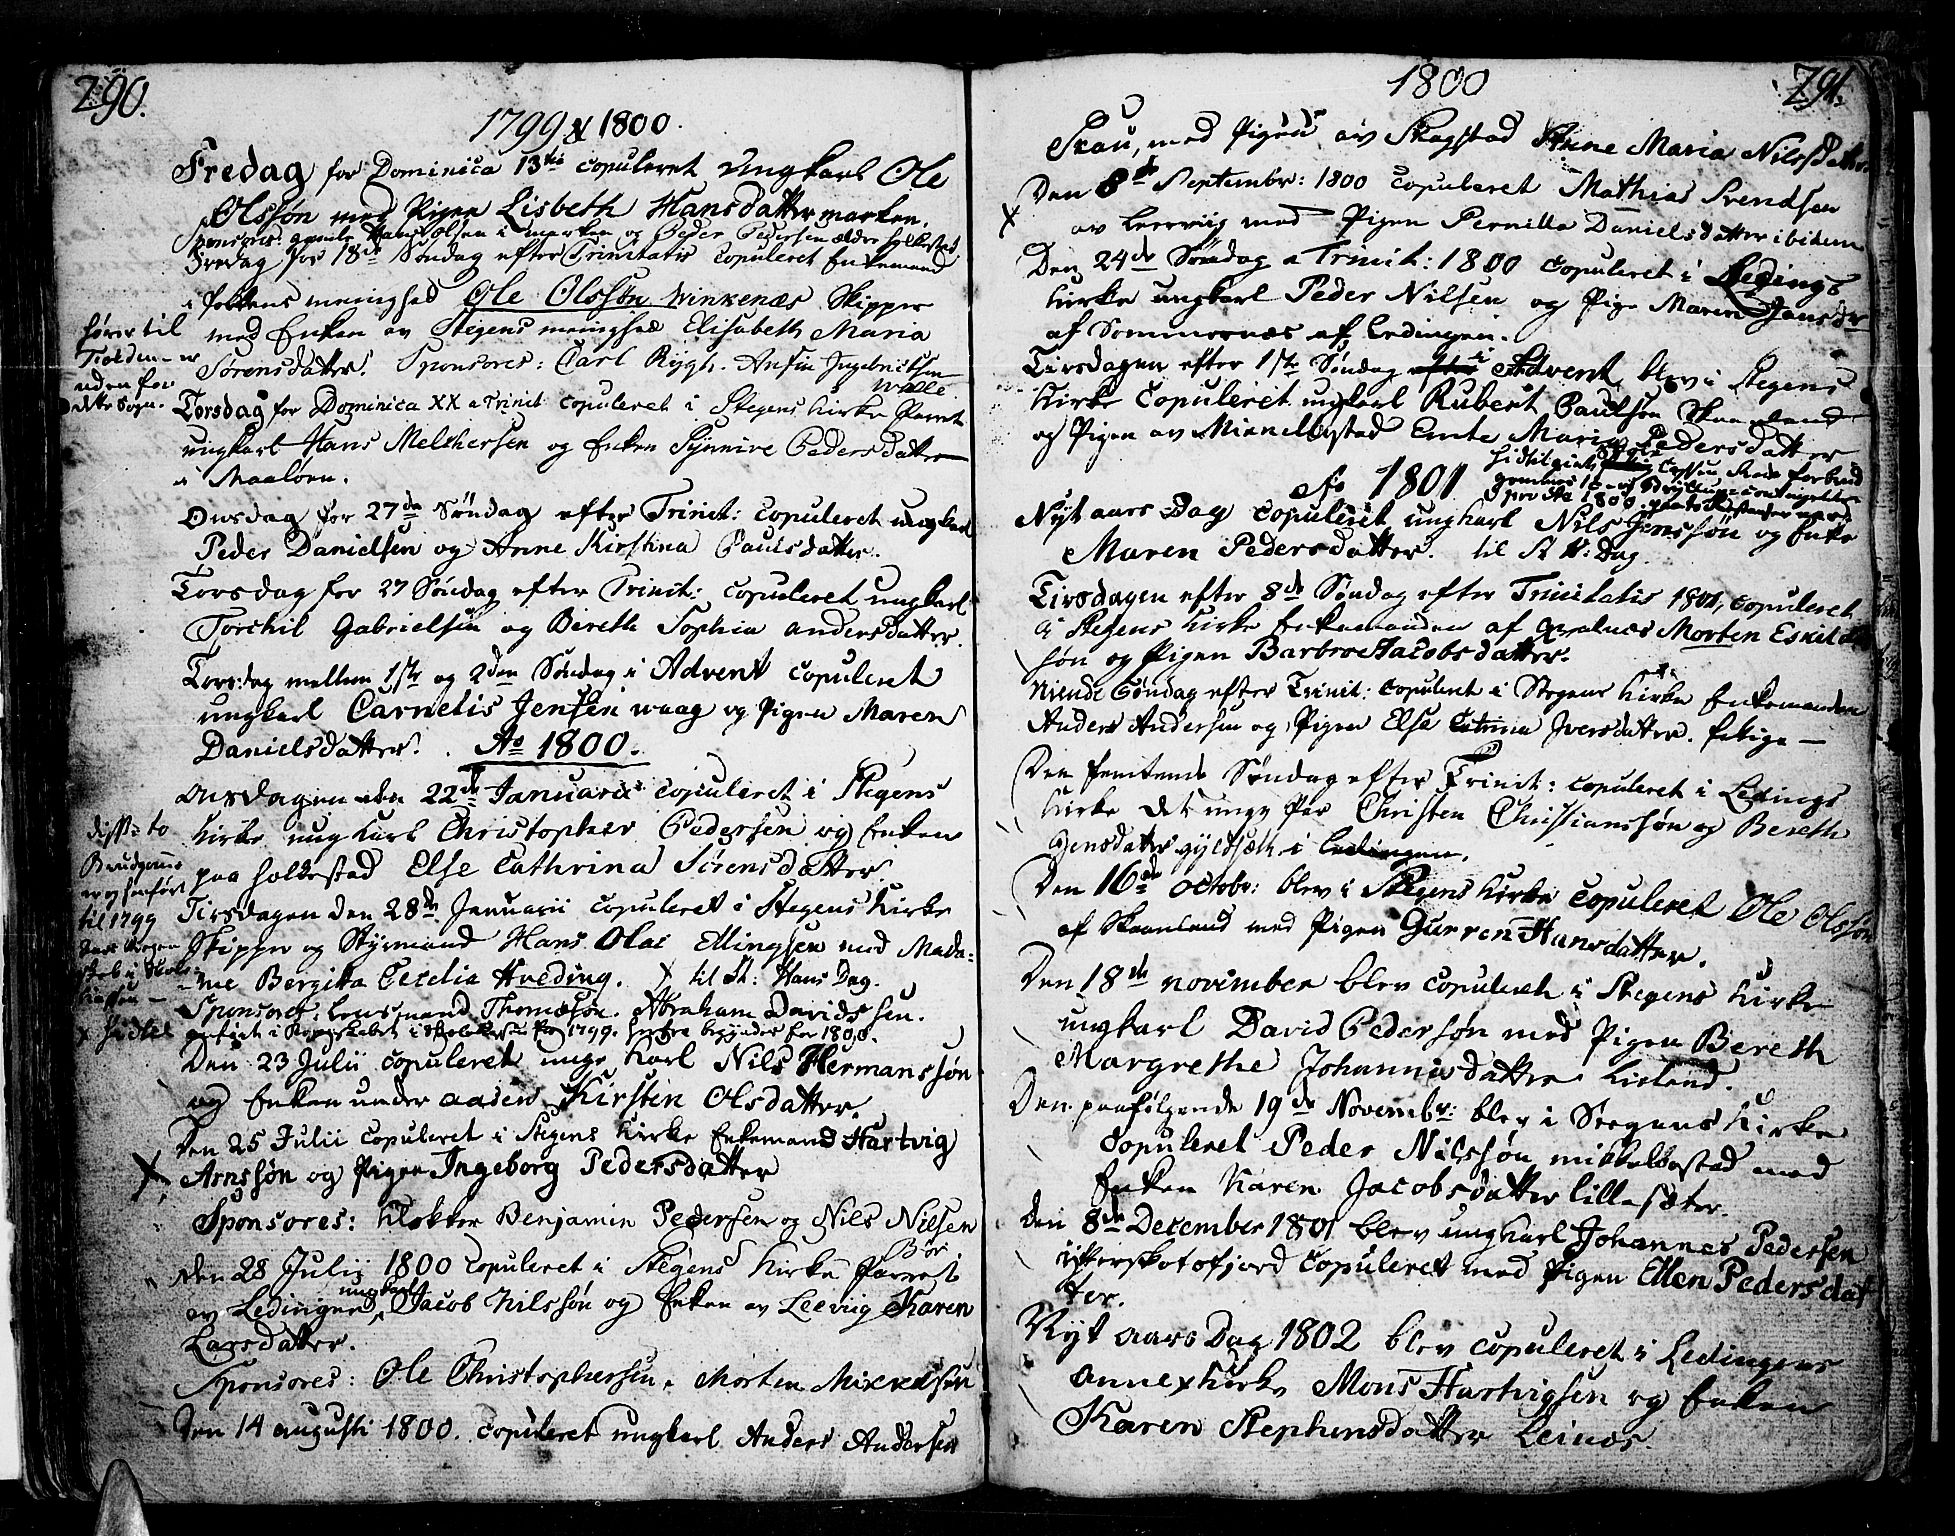 290.
1799 & 1800.
Fredag for Dominica 13tia copuleret Ungkarl Ole
Olssøn med Pigen Lisbeth Hansdatter marken.
Sponsores: gamle Hans Olsen i marken og Peder Pedersen ældre holkestad
Fredag for 18de Søndag efter Trinitatis copuleret Enkemand
i foldens menighed Ole Olssøn Winkenæs Skipper
med Enken av Stegens menighed Elisabeth Maria
Sørensdatter. Sponsores: Carl Rygh. Anfin Ingebrictsen
walle
hører til
Folden - er
uden for
dette Sogn.
Torsdag for Dominica XX a Trinit copuleret i Stegens Kirke Parret
ungkarl Hans Melchersen og Enken Synnive Pedersdatter
i Maaløen.
Onsdag for 27de Søndag efter Trinit: copuleret ungkarl
Peder Danielsen og Anne Kirstina Paulsdatter.
Torsdag for 27 Søndag efter Trinit: copuleret ungkarl
Torchil Gabrielsen og Bereth Sophia andersdatter.
Torsdag mellem 1ste og 2den Søndag i Advent copuleret
ungkarl Carnelis Jensen waag og Pigen Maren
Danielsdatter.
Ao 1800.
Onsdagen den 22de Januarii copuleret i Stegens
Kirke ung Karl Christopher Pedersen og Enken
paa holkestad Else Cathrina Sørensdatter.
disse to
til 1799
Tirsdagen den 28de Januarii copuleret i Stegens Kirke
Skipper og Styrmand Hans Olai Ellingsen med Mada-
me Bergitta Cecelia Hveding. X til St: Hans Dag.
Sponsores: Lensmand Thomæsøn. Abraham Davidssen.
X hidtil anført i Regnskabet i for 1799. begynder for 1800.
Den 23 Julii copuleret unge Karl Nils Hermanssøn
og Enken under aasen Kirstin Olsdatter.
Den 25 Julii copuleret i Stegens Kirke Enkemand Hartvig
Arnssøn og Pigen Ingeborg Pedersdatter
Sponsores: Klokker Benjamin Pedersen og Nils Nilsen
Bør
Den 28 Julij 1800 copuleret i Stegens Kirke Parret
av Ledingen ungkarl Jacob Nilssøn og Enken av Leerviig Karen
Larsdatter.
Sponsores: Ole Christophersen, Morten Mikkelsen
Den 14 augusti 1800. copuleret ungkarl Anders Andersen
1800
291.
Skau, med Pigen av Skagstad Anne Maria Nilsdatter
Den 8de Septembr: 1800 copuleret Mathias Svendsen
X av Leerviig med Pigen Pernilla Danielsdatter ibidem
Den 24de Søndag a Trinit: 1800 copuleret i Ledings
Kirke ungkarl Peder Nilsen og Pige Maren Jansdr
af Sommernæs af Ledingen.
Tirsdagen efter 1ste Søndag efter i Advent blev i Stegens
Kirke Copuleret ungkarl Rubert Paulsen Skaanland
og Pigen av Mickelbostad Emte Maria Pedersdatter
Ao 1801
Nyt aars Dag copuleret ungkarl Nils Jenssøn og Enke
Maren Pedersdatter. til St H: Dag.
Tirsdagen efter 8de Søndag efter Trinitatis 1801, copuleret
i Stegens Kirke Enkemanden af Morten Eskild
søn og Pigen Barbroe Jacobsdatter.
Niende Søndag efter Trinit: copuleret i Stegens Kirke Enkemanden
Anders Andersen og Pigen Else Catrina Iversdatter.
Den femtende Søndag efter Trinit: copuleret i Ledings
Kirke det unge Par Christen Christianssøn og Bereth
Jensdatter gyldsæth i Ledingen.
Den 16de Octobr: blev i Stegens Kirke copuleret Ole Olssøn
af Skaanland med Pigen Gurren Hansdatter.
Den 18de november blev copuleret i Stegens Kirke
ungkarl David Pedersøn med Pigen Bereth
Margrethe Johannisdatter
Den paafølgende 19de Novembr: blev i Stegens Kirke
Copuleret Peder Nilssøn mikkelbostad med
Enken Karen Jacobsdatter lillesæter.
Den 8de December 1801 blev ungkarl Johannes Pedersen
copuleret med Pigen Ellen Pedersdat
ter.
Nyt aars Dag 1802 blev copuleret i Ledingens
annex Kirke Mons Hartvigsen og Enken
Karen Stephensdatter Leines.